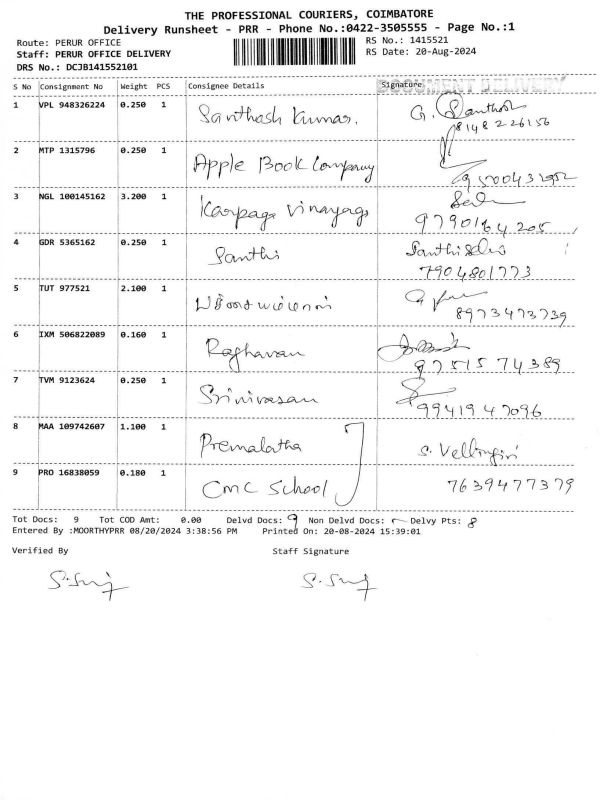 THE PROFESSIONAL COURIERS, COIMBATORE
Delivery Runsheet - PRR - Phone No.:0422-3505555 - Page No.:1
Route: PERUR OFFICE
RS No.: 1415521
Staff: PERUR OFFICE DELIVERY
RS Date: 20-Aug-2024
DRS No.: DCJB141552101
DOCUMENT DELIVERY
S No Consignment No Weight PCS Consignee Details Signature
1 VPL 948326224 0.250 1 Santhash Kumar. G. Santhosh
8148226156
2 MTP 1315796 0.250 1 Apple Book Company
3 NGL 100145162 3.200 1 Karpaga Vinayaga
9790164205
4 GDR 5365162 0.250 1 Santhi
7904801773
5 TUT 977521 2.100 1
8973473739
6 IXM 506822089 0.160 1 Raghavan
9751574389
7 TVM 9123624 0.250 1 Srinivasan
9941947096
8 MAA 109742607 1.100 1 Premalatha S. Vellingiri
9 PRO 16838059 0.180 1 CMC School 7639477379
Tot Docs: 9 Tot COD Amt: 0.00 Delvd Docs: 9 Non Delvd Docs: Delvy Pts: 8
Entered By :MOORTHYPRR 08/20/2024 3:38:56 PM Printed On: 20-08-2024 15:39:01
Verified By Staff Signature